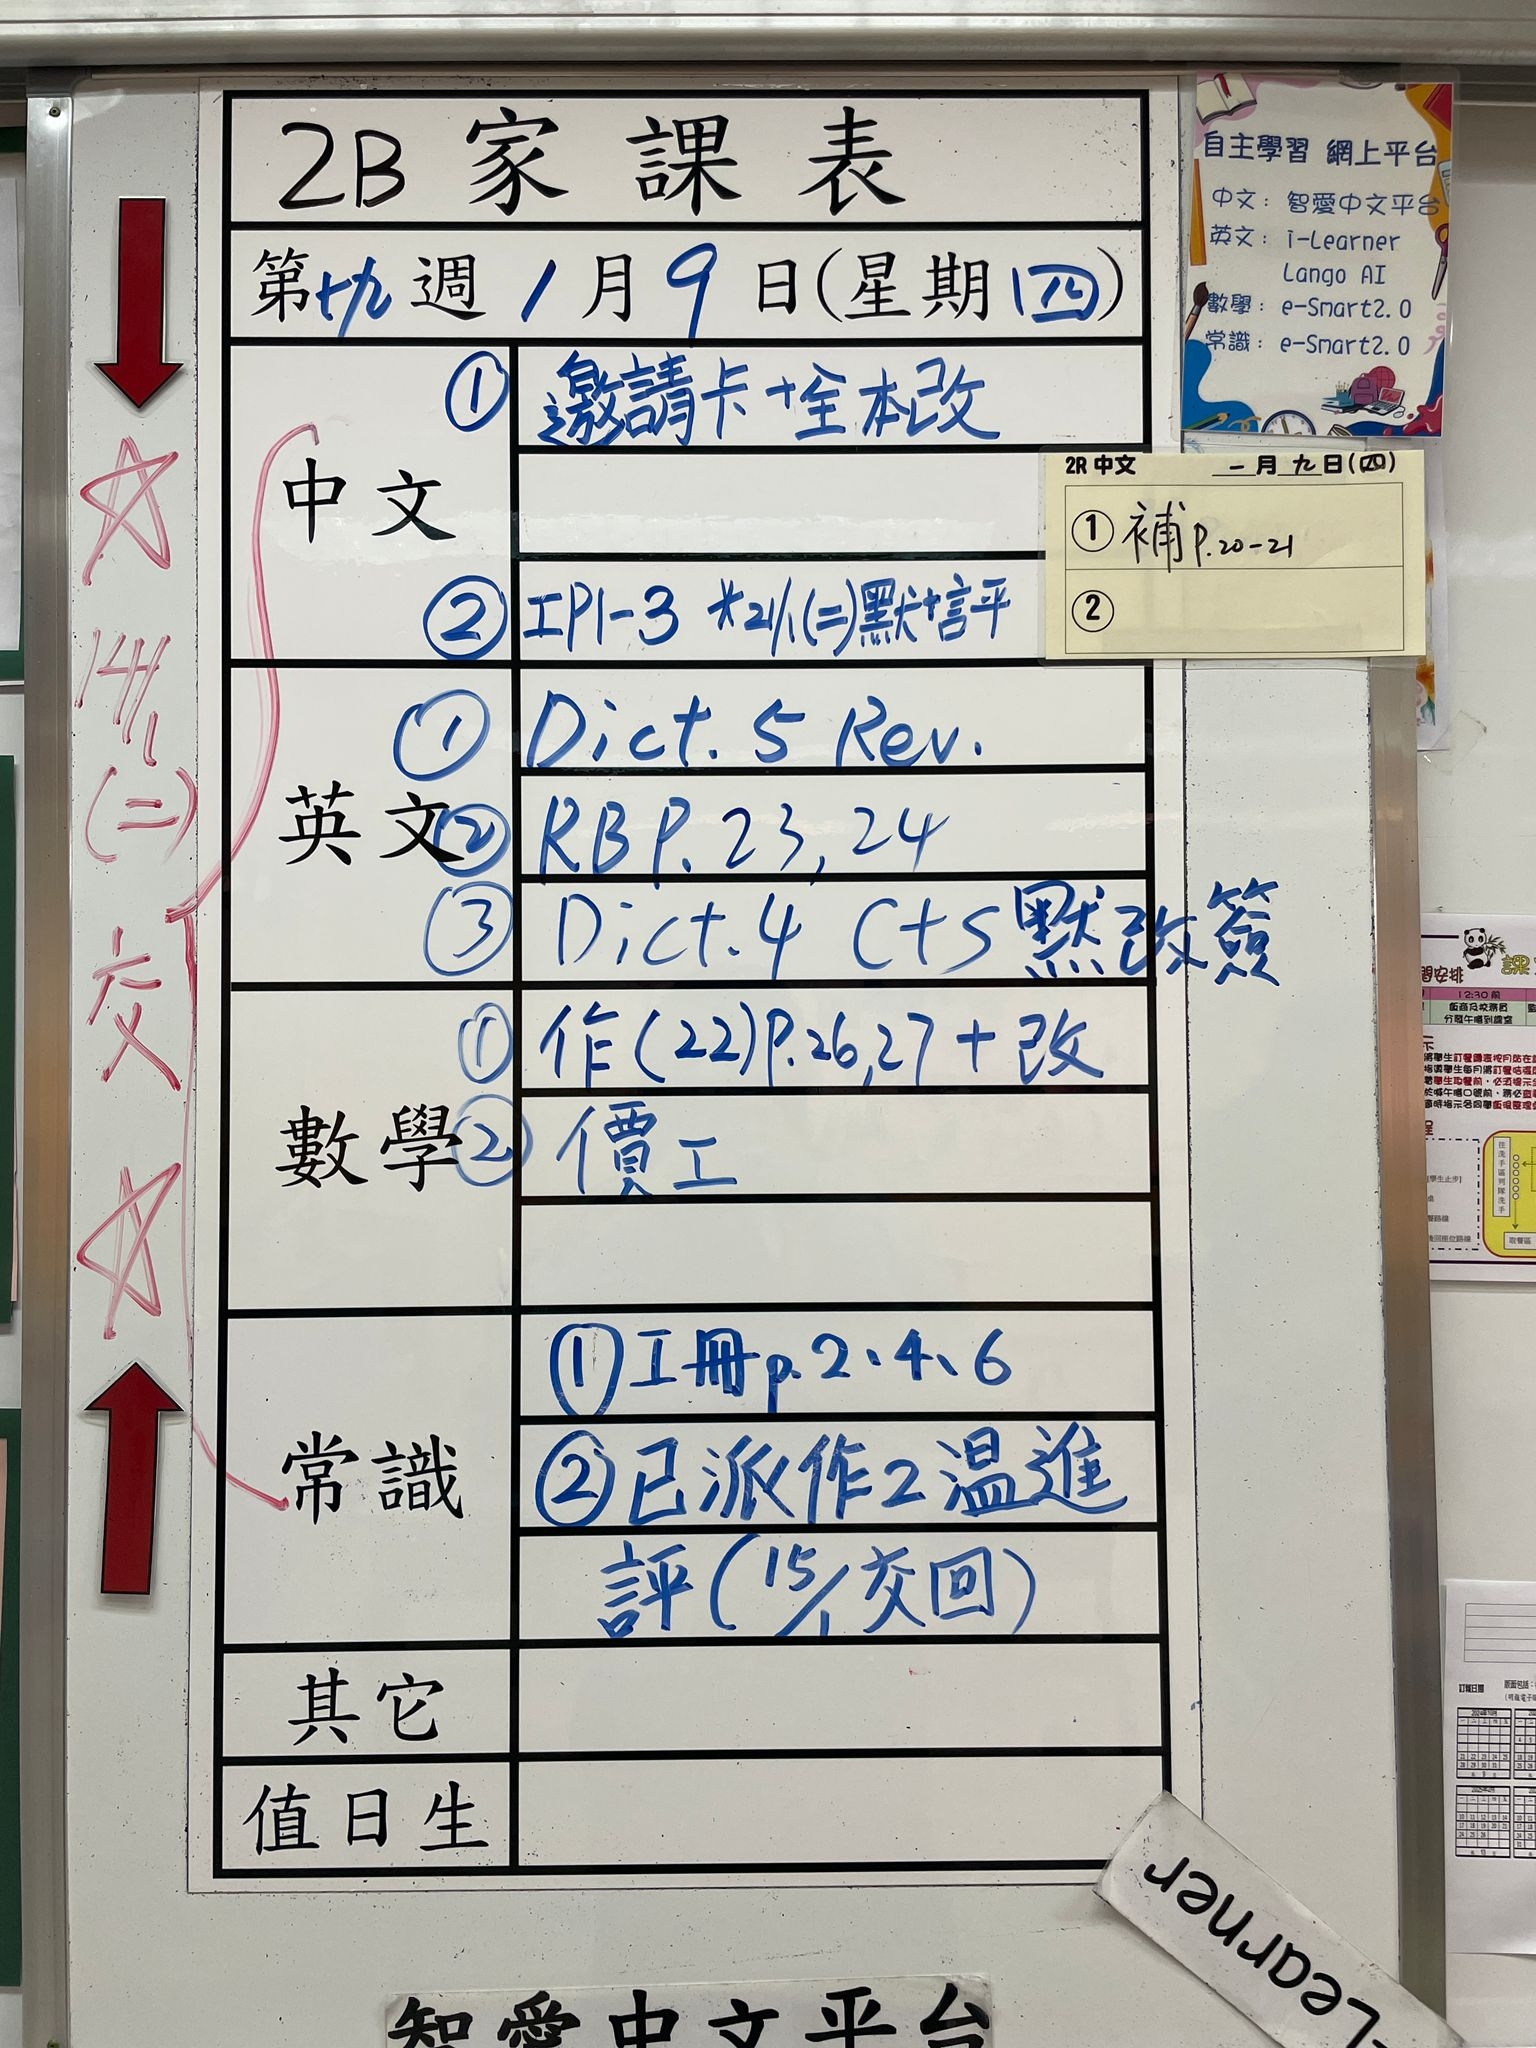 2B 家課表
第十九週 1月9日(星期四)
中文
① 邀請卡+全本改
② 工P1-3 *21/1(二)默+評
英文
① Dict. 5 Rev.
② RB P. 23, 24
③ Dict. 4 C+S 默改簽
數學
① 作(22)P.26,27+改
② 價工
常識
① 工冊p.2、4、6
② 已派作2溫進
評(15/1交回)
其它
值日生
☆ 14/1 (二) 交 ☆
自主學習 網上平台
中文: 智愛中文平台
英文: i-Learner
Lango AI
數學: e-Smart2.0
常識: e-Smart2.0
2R 中文 一月九日(四)
① 補 p.20-21
②
12:30前
飯商及校務員
分發午膳到課室
取餐區
訂餐日期
-Learner
智愛中文平台